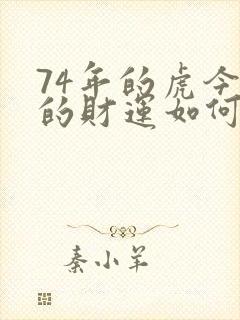 74年的虎今
的财运如何
秦小羊